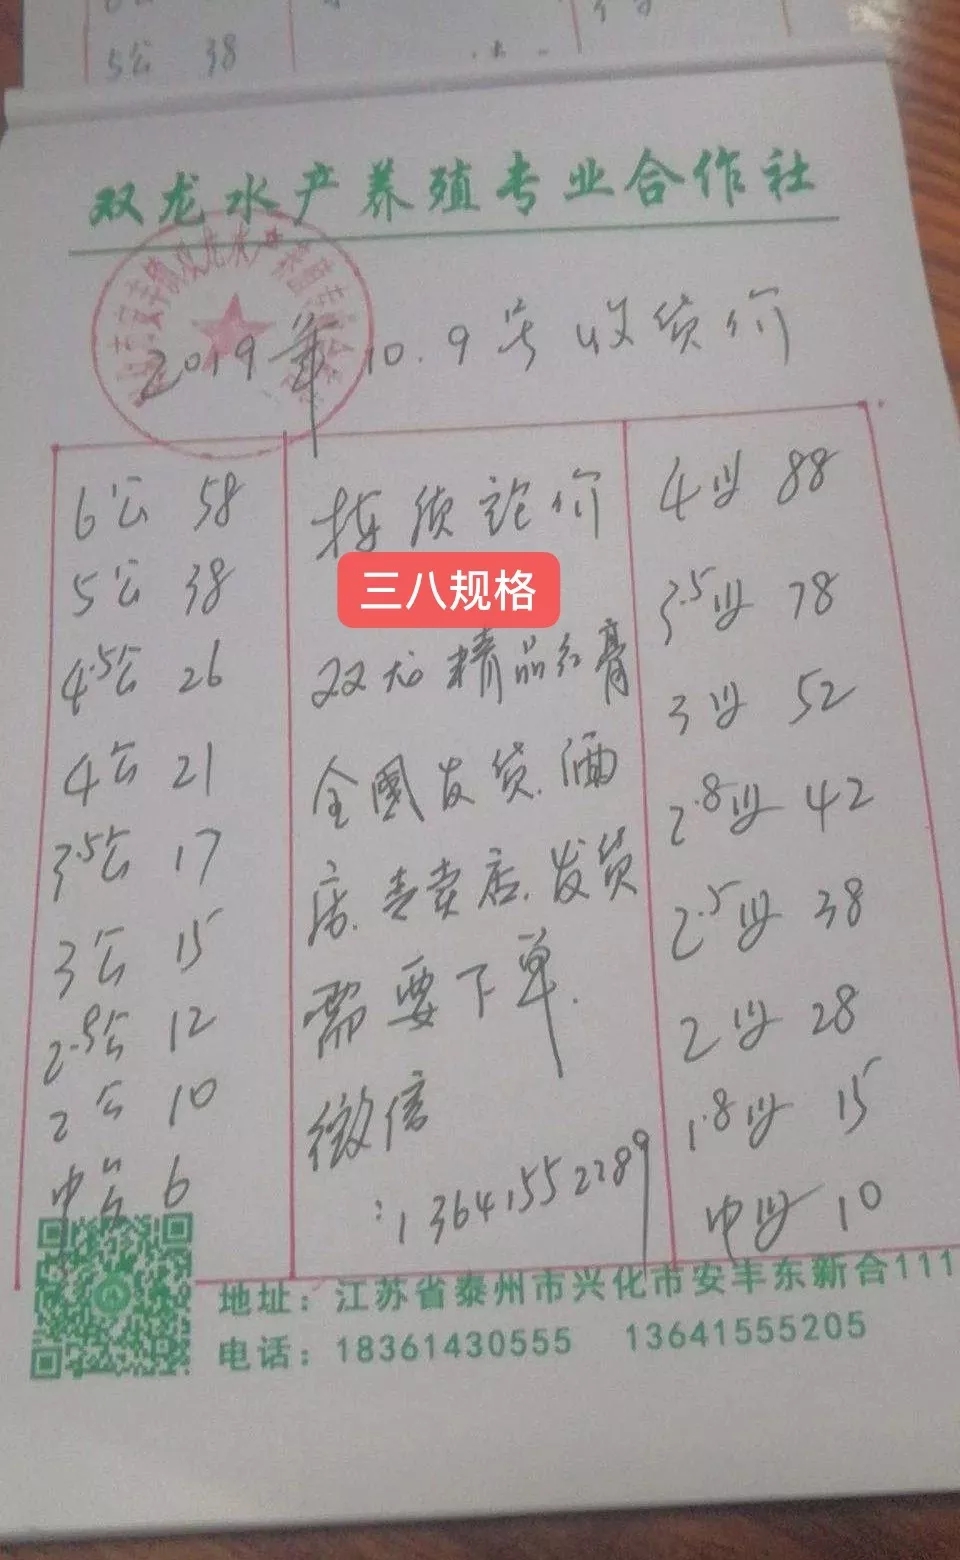 5公 38
双龙水产养殖专业合作社
2019年10.9号收货价
6公 58
5公 38
4.5公 26
4公 21
3.5公 17
3公 15
2.5公 12
2公 10
中公 6
按质论价
三八规格
双龙精品红膏
全國发货.酒
店.专卖店.发货
需要下单.
微信
:13641552289
4母 88
3.5母 78
3母 52
2.8母 42
2.5母 38
2母 28
1.8母 15
中母 10
地址：江苏省泰州市兴化市安丰东新合111
电话：18361430555 13641555205